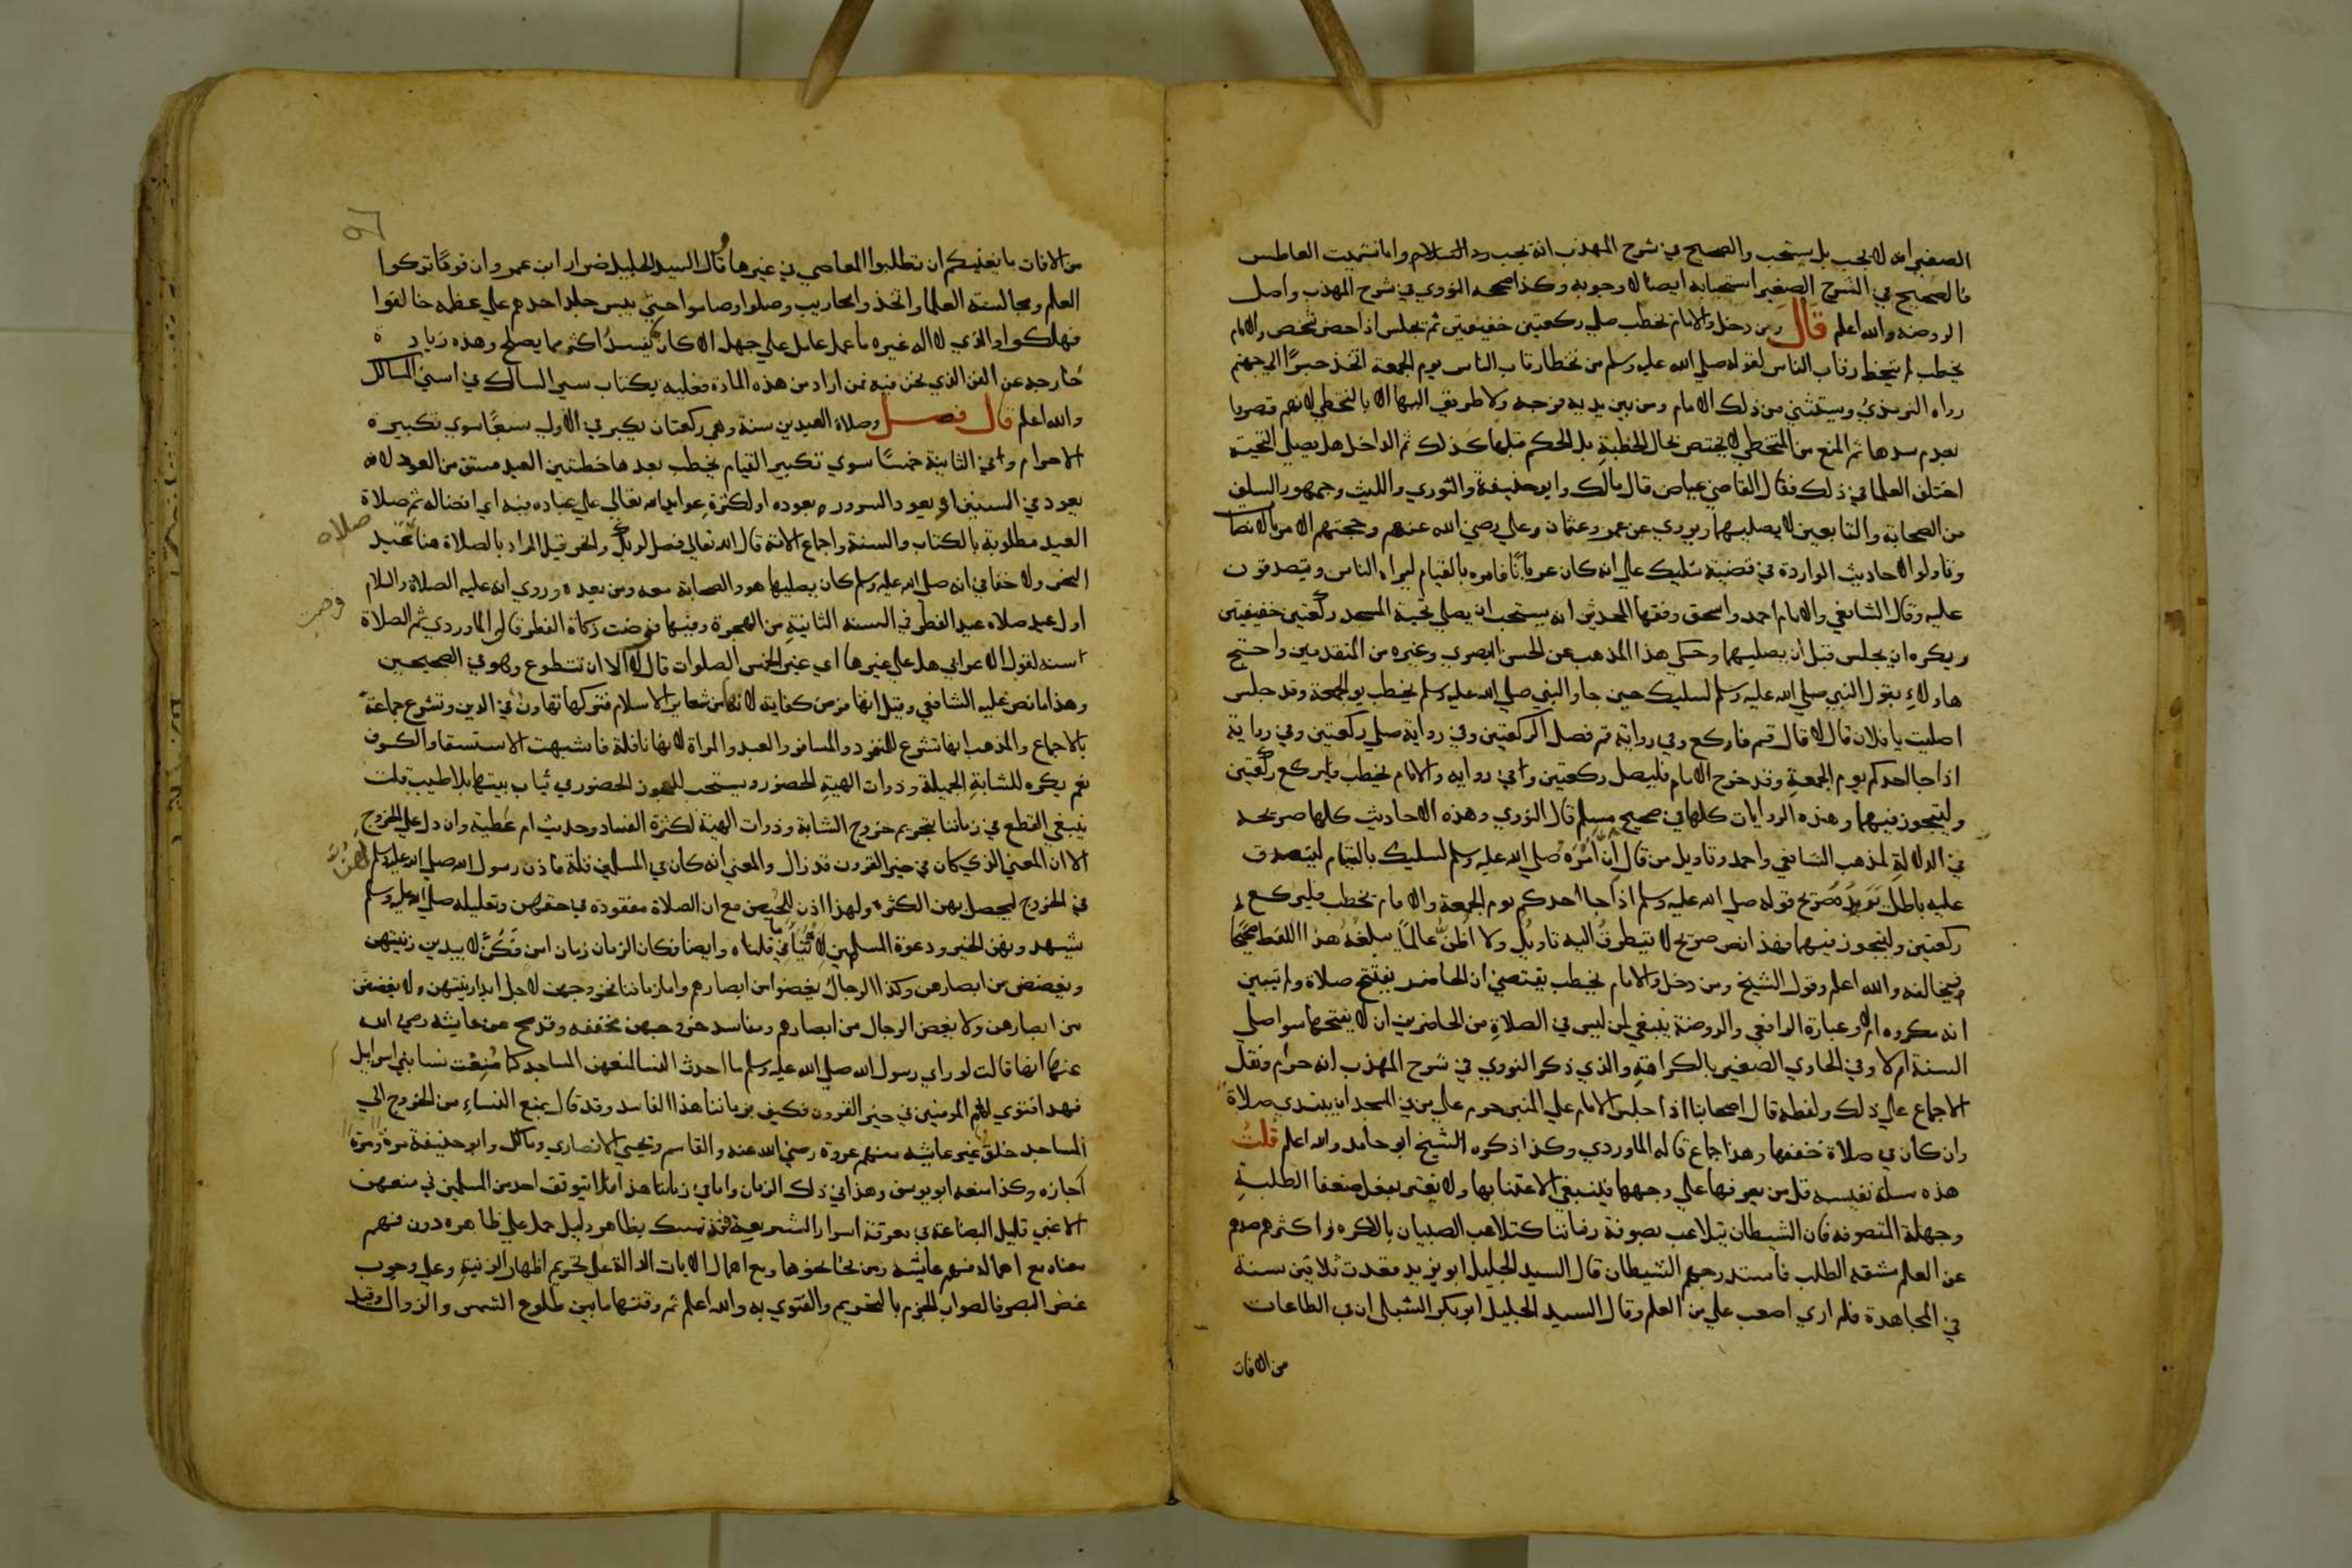 الصغير انه لا يجب بل يستحب والصحيح في شرح المهذب انه يجب رد السلام واما تشميت العاطس
فالصحيح في الشرح الصغير استحبابه ايضا لا وجوبه وكذا صححه النووي في شرح المهذب واصل
الروضة والله اعلم قال ومن دخل والامام يخطب صلي ركعتين خفيفتين ثم يجلس اذا حضر شخص والامام
يخطب لم يتخط رقاب الناس لقوله صلي الله عليه وسلم من تخطا رقاب الناس يوم الجمعة اتخذ جسرًا الي جهنم
رواه الترمذي ويستثني من ذلك الامام ومن بين يديه فرجة ولا طريق اليها الا بالتخطي لانهم قصروا
بعدم سدها ثم المنع من التخطي لا يختص بحال الخطبة بل الحكم قبلها كذلك ثم الداخل هل يصلي التحية
اختلف العلما في ذلك فقال القاضي عياض قال مالك وابو حنيفة والثوري والليث وجمهور السلف
من الصحابة والتابعين لا يصليهما ويروي عن عمر وعثمان وعلي رضي الله عنهم وحجتهم الامر بالانصات
وتاولوا الاحاديث الواردة في قضية سليك علي انه كان عريانًا فامره بالقيام ليراه الناس ويتصدقون
عليه وقال الشافعي والامام احمد واسحق وفقها المحدثين انه يستحب ان يصلي تحية المسجد ركعتين خفيفتين
ويكره ان يجلس قبل ان يصليهما وحكي هذا المذهب عن الحسن البصري وغيره من المتقدمين واحتج
هاولاء بقول النبي صلي الله عليه وسلم لسليك حين جا والنبي صلي الله عليه وسلم يخطب يوم الجمعة وقد جلس
اصليت يا فلان قال لا قال قم فاركع وفي رواية قم فصل الركعتين وفي رواية صلي ركعتين وفي رواية
اذا جا احدكم يوم الجمعة وقد خرج الامام فليصل ركعتين وفي رواية والامام يخطب فليركع ركعتين
وليتجوز فيهما وهذه الروايات كلها في صحيح مسلم قال النووي وهذه الاحاديث كلها صريحة
في الدلالة لمذهب الشافعي واحمد وتاويل من قال ان امره صلي الله عليه وسلم لسليك بالقيام ليتصدق
عليه باطل يرده صريح قوله صلي الله عليه وسلم اذا جا احدكم يوم الجمعة والامام يخطب فليركع
ركعتين وليتجوز فيهما فهذا نص صريح لا يتطرق اليه تاويل ولا اظن عالمًا يبلغه هذا اللفظ صحيحًا
فيخالفه والله اعلم وقول الشيخ ومن دخل والامام يخطب يقتضي ان الحاضر يفتتح صلاة ولم يتبين
انه مكروه ام لا وعبارة الرافعي والروضة ينبغي لمن ليس في الصلاة من الحاضرين ان لا يفتتحها سوا صلي
السنة ام لا وفي الحاوي الصغير بالكراهة والذي ذكر النووي في شرح المهذب انه حرام ونقل
الاجماع علي ذلك ولفظه قال اصحابنا اذا جلس الامام علي المنبر حرم علي من في المسجد ان يبتدي صلاة
وان كان في صلاة خففها وهذا اجماع قاله الماوردي وكذا ذكره الشيخ ابو حامد والله اعلم قلت
هذه مسلة نفيسة قل من يعرفها علي وجهها فلينبغي الاعتنا بها ولا يغتر بفعل ضعفا الطلبة
وجهلة المتصوفة فان الشيطان يتلاعب بصوفة زماننا كتلاعب الصبيان بالكره واكثرهم صدهم
عن العلم مشقة الطلب فاستدرجهم الشيطان قال السيد الجليل ابو يزيد قعدت ثلاثين سنة
في المجاهدة فلم اري اصعب علي من العلم وقال السيد الجليل ابو بكر الشبلي ان في الطاعات
من الافات
من الافات ما يغنيكم ان تطلبوا المعاصي في غيرها وقال السيد الجليل ضرار ابن عمرو ان قومًا تركوا
العلم ومجالسة العلما واتخذوا محاريب وصلوا وصاموا حتي يبس جلد احدهم علي عظمه خالفوا
فهلكوا والذي لا اله غيره ما عمل عامل علي جهل الا كان يفسد اكثر مما يصلح وهذه زيادة
خارجة عن الفن الذي نحن فيه فمن اراد من هذه المادة فعليه بكتاب سير السالك في اسني المسالك
والله اعلم قال فصل وصلاة العيدين سنة وهي ركعتان يكبر في الاولي سبعًا سوي تكبيرة
الاحرام وفي الثانية خمسًا سوي تكبير القيام يخطب بعدها خطبتين العيد مشتق من العود لانه
يعود في السنين او يعود السرور بعوده او لكثرة عوايد الله تعالي علي عباده فيه اي افضاله ثم صلاة
العيد مطلوبة بالكتاب والسنة واجماع الامة قال الله تعالي فصل لربك وانحر قيل المراد بالصلاة هنا عيد
صلاه
النحر ولا خفا في انه صلي الله عليه وسلم كان يصليها هو والصحابة معه ومن بعده وروي انه عليه الصلاة والسلام
اول عيد صلاه عيد الفطر في السنة الثانية من الهجرة وفيها فرضت زكاة الفطر قاله الماوردي ثم الصلاة
فرضت
سنة لقول الاعرابي هل علي غيرها اي غير الخمس الصلوات قال لا الا ان تتطوع وهو في الصحيحين
وهذا ما نص عليه الشافعي وقيل انها فرض كفاية لانها من شعاير الاسلام فتركها تهاون في الدين وتشرع جماعة
بالاجماع والمذهب انها تشرع للمنفرد والمسافر والعبد والمراة لانها نافلة فاشبهت الاستسقا والكسوف
نعم يكره للشابة الجميلة وذوات الهية الحضور ويستحب للعجوز الحضور في ثياب بيتها بلا طيب قلت
ينبغي القطع في زماننا بتحريم خروج الشابة وذوات الهية لكثرة الفساد وحديث ام عطية وان دل علي الخروج
الا ان المعني الذي كان في خير القرون قد زال والمعني انه كان في المسلمين قلة فاذن رسول الله صلي الله عليه وسلم لهن
في الخروج ليحصل بهن الكثرة ولهذا اذن للحيض مع ان الصلاة مفقودة في حقهن وتعليله صلي الله عليه وسلم
بشهودهن الخير ودعوة المسلمين لا ينافي ما قلناه وايضا فكان الزمان زمان امن فكن لا يبدين زينتهن
ويغضضن من ابصارهن وكذا الرجال يغضوا من ابصارهم واما زماننا فخروجهن لاجل ابدا زينتهن ولا يغضضن
من ابصارهن ولا يغض الرجال من ابصارهم ومفاسد خروجهن محققة وقد صح عن عايشة رضي الله
عنها انها قالت لو راي رسول الله صلي الله عليه وسلم ما احدث النسا لمنعهن المساجد كما منعت نسا بني اسرايل
فهذا فتوي ام المومنين في خير القرون فكيف بزماننا هذا الفاسد وقد قال بمنع النساء من الخروج الي
المساجد خلق غير عايشة منهم عروة رضي الله عنه والقاسم ويحيي الانصاري ومالك وابو حنيفة مرة ومرة
اجازه وكذا منعه ابو يوسف وهذا في ذلك الزمان واما في زماننا هذا فلا يتوقف احد من المسلمين في منعهن
الا غبي قليل البضاعة في معرفة اسرار الشريعة قد تمسك بظاهر دليل حمل علي ظاهره دون فهم
معناه مع اهماله فهم عايشة ومن نحا نحوها ومع اهمال الايات الدالة علي تحريم اظهار الزينة وعلي وجوب
غض البصر فالصواب الجزم بالتحريم والفتوي به والله اعلم ثم وقتها ما بين طلوع الشمس والزوال وقيل